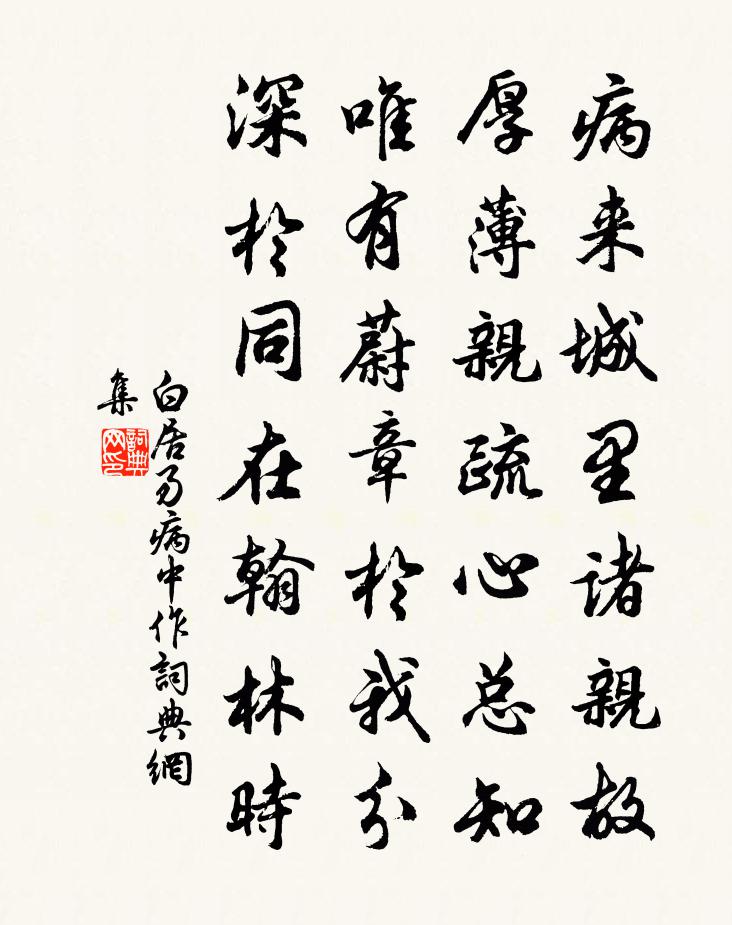 病来城里諸親故
厚薄親疏心总知
唯有蔚章於我分
深於同在翰林時
白居易病中作詞典網
集
詞典
网印